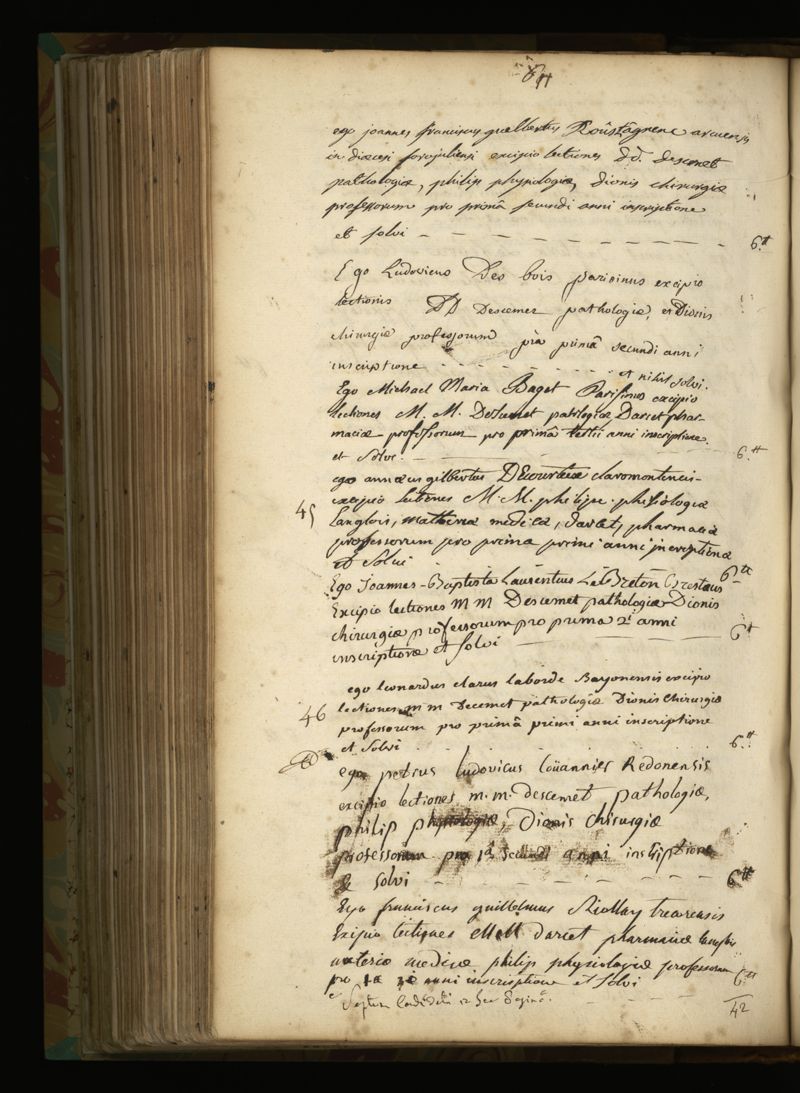 ego joannes franciscus guilbertus Roûstâgnenc arcuensis
in diœcesi forojuliensi excipio lectiones DD. descemet
pathologiæ, philip physiologiæ, dionis chirurgiæ
professorum pro primâ secundi anni inscriptione
et solvi 6.tt
Ego Ludovicus Des bois parisinus excipio
lectiones DD Descemet pathologiæ, et Dionis
chirurgiæ professorum pro primâ secundi anni
inscriptione et nihil solvi.
Ego Michael Maria Baget Parisinus excipio
lectiones M. M. Descemet patologiæ Darcet phar-
maciæ professorum pro primâ tertii anni inscriptione.
et solvi. 6.tt
ego annæus gilbertus claromontensis
45
excipio lectiones M. M. philippe. phisiologiæ
Langlois, matheria medica, darcet, pharmaciæ
professorum pro prima primi anni inscriptione
et solvi 6tt
Ego Joannes-Baptista Laurentius Le Breton Brestæus
Excipio lectiones m m Descemet pathologiæ Dionis
chirurgiæ professorum pro prima 2i anni
inscriptione et solvi 6tt
ego leonardus clarus laborde Bayonensis excipio
46
lectiones m m Decemet pathologiæ Dionis chirurgiæ
professorum pro primâ primi anni inscriptione
et solvi 6.tt
ego petrus ludovicus Redonensis
excipio lectiones m. m. descemet pathologiæ,
philip physiologiæ, Dionis chirurgiæ
professorum pro 1â secundi anni inscriptione
& solvi 6tt
Ego franciscus guillelmus Riollay trecorensis
Excipio lectiones MM darcet pharmaciæ langlois
materiæ medicæ philip physiologiæ professorum
pro 1a anni inscriptione et solvi 6tt
Septem Candidati in hac paginâ. 42